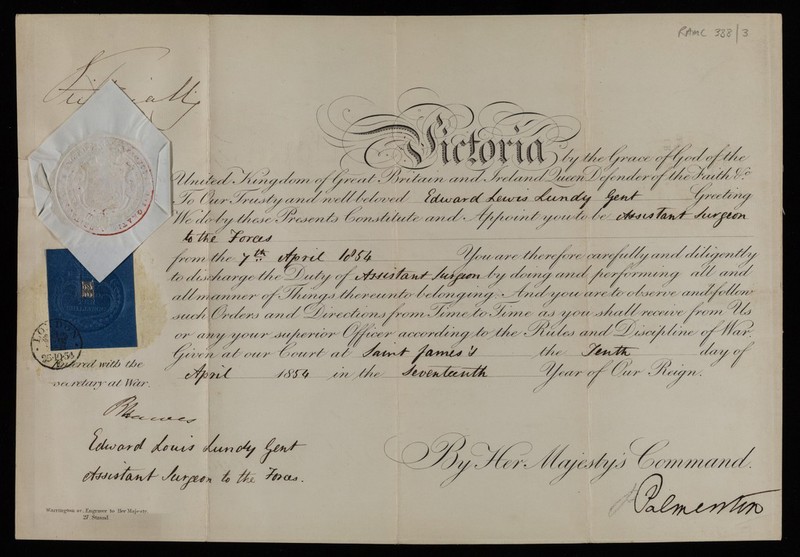 RAMC 388/3
Victoria
Victoria by the Grace of God of the
United Kingdom of Great Britain and Ireland Queen Defender of the Faith &c.
To Our Trusty and well beloved Edward Lewis Lundy Gent Greeting
We do by these Presents Constitute and Appoint you to be Assistant Surgeon
to the Forces
from the 7th April 1854 You are therefore carefully and diligently
to discharge the Duty of Assistant Surgeon by doing and performing all and
all manner of Things thereunto belonging. And you are to observe and follow
such Orders and Directions from Time to Time as you shall receive from Us
or any your superior Officer according to the Rules and Discipline of War.
Given at our Court at Saint James's the Tenth day of
April 1854 in the Seventeenth Year of Our Reign.
LONDON
25·10·54
Entered with the
Secretary at War.
BHawes
Edward Louis Lundy Gent
Assistant Surgeon to the Forces.
By Her Majesty's Command.
Palmerston
Warrington sc. Engraver to Her Majesty
27 Strand